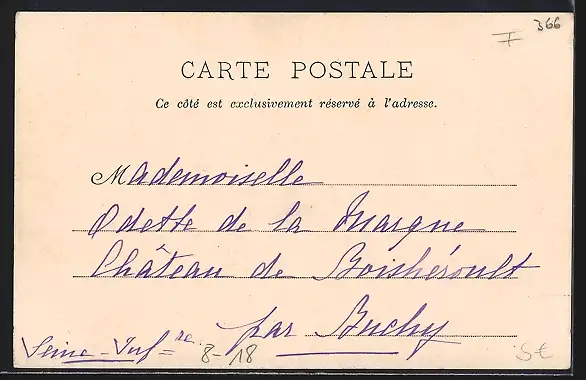 366
I
CARTE POSTALE
Ce côté est exclusivement réservé à l'adresse.
Mademoiselle
Odette de la Marque
Château de Boishéroult
par Buchy
Seine-Infre 8-18
5€